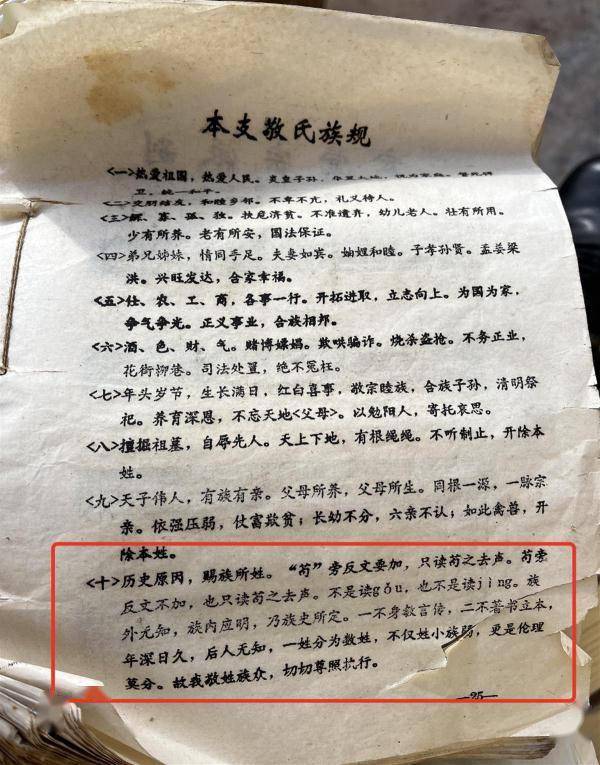 本支敬氏族规
<一>热爱祖国，热爱人民。炎皇子孙，
卫，统一和平。
<二>交朋结友，和睦乡邻。不卑不亢，礼义待人。
<三>鳏、寡、孤、独。扶危济贫。不准遗弃，幼儿老人。壮有所用。
少有所养。老有所安，国法保证。
<四>弟兄姊妹，情同手足。夫妻如宾。妯娌和睦。子孝孙贤。孟姜梁
洪。兴旺发达，合家幸福。
<五>仕、农、工、商，各事一行。开拓进取，立志向上。为国为家，
争气争光。正义事业，合族相邦。
<六>酒、色、财、气。赌博嫖娼。欺哄骗诈。烧杀盗抢。不务正业，
花街柳巷。司法处置，绝不冤枉。
<七>年头岁节，生长满日，红白喜事，敬宗睦族，合族子孙，清明祭
祀。养育深恩，不忘天地<父母>。以勉阳人，寄托哀思。
<八>擅掘祖墓，自辱先人。天上下地，有根绳绳。不听制止，开除本
姓。
<九>天子伟人，有族有亲。父母所养，父母所生。同根一源，一脉宗
亲。依强压弱，仗富欺贫；长幼不分，六亲不认；如此禽兽，开
除本姓。
<十>历史原因，赐族所姓。“苟”旁反文要加，只读苟之去声。苟旁
反文不加，也只读苟之去声。不是读gǒu，也不是读jìng。族
外无知，族内应明，乃族史所定。一不身教言传，二不著书立本，
年深日久，后人无知，一姓分为数姓，不仅姓小族弱，更是伦理
莫分。故我敬姓族众，切切尊照执行。
—25—